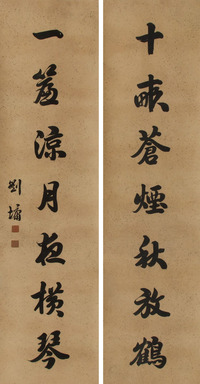 十畝蒼煙秋放鶴
一簾涼月夜橫琴
劉墉